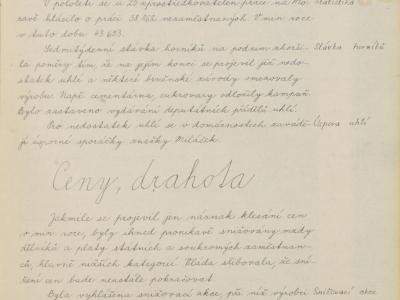 V pololetí se u 25 zprostředkovatelen práce na Mo- Statistika
ravě hlásilo o práci 38.458 nezaměstnaných. V min. roce
v tuto dobu 43.653.
Sedmitýdenní stávka horníků na podzim zhorši- Stávka horníků
la poměry tím, že na jejím konci se projevil již nedo-
statek uhlí a některé brněnské závody omezovaly
výrobu. Např. cementárna, cukrovary odložily kampaň.
Bylo zastaveno vydávání deputátních přídělů uhlí.
Pro nedostatek uhlí se v domácnostech zavádě- Úspora uhlí
jí úsporné sporáčky značky Miláček.
Ceny, drahota
Jakmile se projevil jen náznak klesání cen
v min. roce, byly ihned pronikavě snižovány mzdy
dělníků a platy státních a soukromých zaměstnan-
ců, hlavně nižších kategorií. Vláda slibovala, že sní-
žení cen bude neustále pokračovat.
Byla vyhlášena snižovací akce, při níž výrobci Snižovací akce